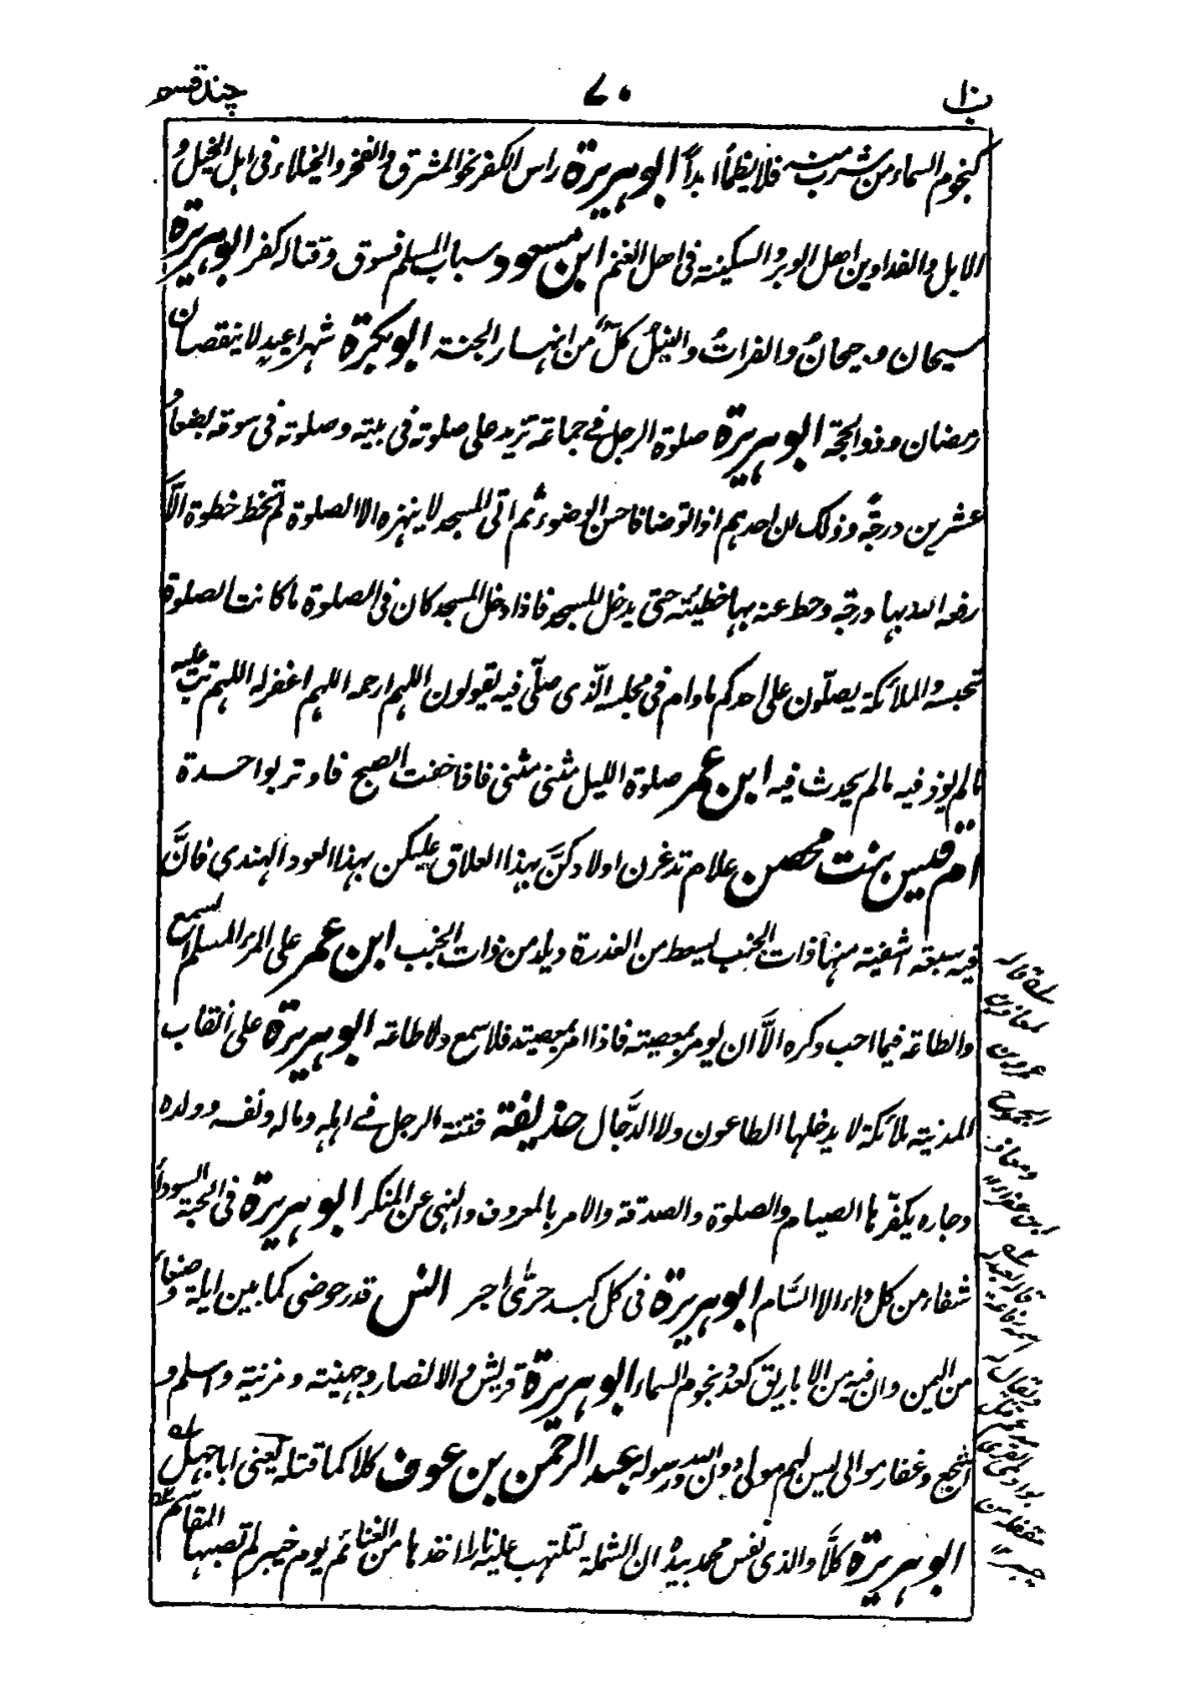 ب ١
٧٠
چند قسم
كنجوم السماء من شرب منه فلا يظمأ ابداً ابو ہريرة راس الكفر نحو المشرق والفخر والخيلاء فى اہل الخيل و
الابل والفدادين اهل الوبر والسكينة فى اهل الغنم ابن مسعود سباب المسلم فسوق وقتاله كفر ابو ہريرة
سيحان وجيحانُ والفراتُ والنيلُ كلٌّ من انہار الجنة ابو بكرة شهرا عيدٍ لا ينقصان
رمضان وذو الحجة ابو ہريرة صلوة الرجل فے جماعة تزيد على صلوته فى بيته وصلوته فى سوقه بضعاً و
عشرين درجةً وذلك ان احدہم اذا توضا فاحسن الوضوء ثم اتى المسجد لا ينہزه الا الصلوة لم يخط خطوة الّا
رفعه الله بہا درجة وحط عنه بہا خطيئة حتى يدخل المسجد فاذا دخل المسجد كان فى الصلوة ما كانت الصلوة
تحبسه والملائكة يصلّون على احدكم ما دام فى مجلسه الّذى صلّى فيه يقولون اللہم ارحمه اللہم اغفر له اللہم تب عليه
ما لم يوذ فيه ما لم يحدث فيه ابن عمر صلوة الليل مثنى مثنى فاذا خفت الصبح فاوتر بواحدة
ام قيس بنت محصن علام تدغرن اولادكنَّ بہذا العلاق عليكن بہذا العود الہندى فانَّ
فيه سبعة اشفية منہا ذات الجنب يسعط من العذرة ويلد من ذات الجنب ابن عمر على المرء المسلم السمع
والطاعة فيما احب وكره الاَّ ان يومر بمعصية فاذا امر بمعصية فلا سمع ولا طاعة ابو ہريرة على انقاب
المدينة ملائكة لا يدخلها الطاعون ولا الدَّجال حذيفة فتنة الرجل فے اہله وماله ونفسه وولده
وجاره يكفّرہا الصيام والصلوة والصدقة والامر بالمعروف والنہى عن المنكر ابو ہريرة فى الحبة السوداء
شفاء من كل داء الا السَّام ابو ہريرة فى كل كبد حرّى اجر انس قدر حوضى كما بين ايلة وصنعاء
من اليمن وان فيه من الاباريق كعدد نجوم السماء ابو ہريرة قريش والانصار وجہينة ومزينة واسلم و
اشجع وغفار موالى ليس لہم مولى دون الله ورسوله عبد الرحمن بن عوف كلاكما قتله يعنى ابا جہل
ابو ہريرة كلَّا والذى نفس محمد بيده ان الشملة لتلتہب عليه نارا اخذہا من الغنائم يوم خيبر لم تصبہا المقاسم
قاله
لمعاذ بن
عمرو بن
الجموح
ومعاذ
ابن عفراء